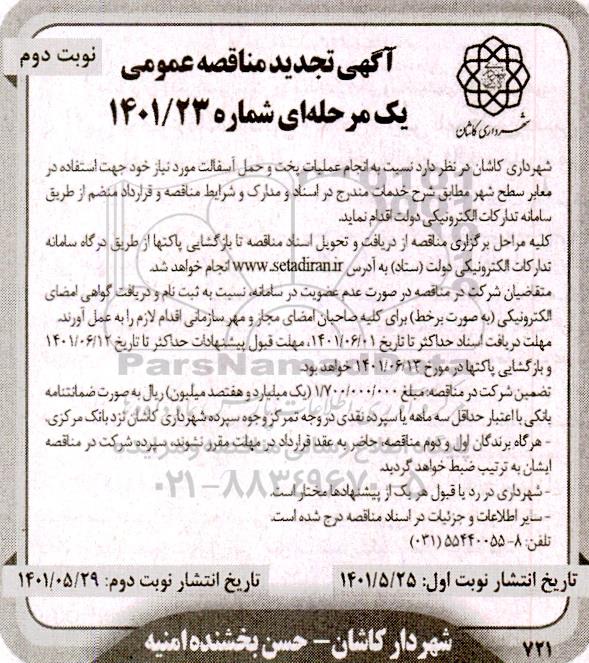 نوبت دوم
آگهی تجدید مناقصه عمومی
یک مرحله‌ای شماره ۱۴۰۱/۲۳
شهرداری کاشان
شهرداری کاشان در نظر دارد نسبت به انجام عملیات پخت و حمل آسفالت مورد نیاز خود جهت استفاده در
معابر سطح شهر مطابق شرح خدمات مندرج در اسناد و مدارک و شرایط مناقصه و قرارداد منضم از طریق
سامانه تدارکات الکترونیکی دولت اقدام نماید.
کلیه مراحل برگزاری مناقصه از دریافت و تحویل اسناد مناقصه تا بازگشایی پاکتها از طریق درگاه سامانه
تدارکات الکترونیکی دولت (ستاد) به آدرس www.setadiran.ir انجام خواهد شد.
متقاضیان شرکت در مناقصه در صورت عدم عضویت در سامانه، نسبت به ثبت نام و دریافت گواهی امضای
الکترونیکی (به صورت برخط) برای کلیه صاحبان امضای مجاز و مهر سازمانی اقدام لازم را به عمل آورند.
مهلت دریافت اسناد حداکثر تا تاریخ ۱۴۰۱/۰۶/۰۱، مهلت قبول پیشنهادات حداکثر تا تاریخ ۱۴۰۱/۰۶/۱۲
و بازگشایی پاکتها در مورخ ۱۴۰۱/۰۶/۱۳ خواهد بود.
تضمین شرکت در مناقصه: مبلغ ۱/۷۰۰/۰۰۰/۰۰۰ (یک میلیارد و هفتصد میلیون) ریال به صورت ضمانتنامه
بانکی با اعتبار حداقل سه ماهه یا سپرده نقدی در وجه تمرکز وجوه سپرده شهرداری کاشان نزد بانک مرکزی.
- هرگاه برندگان اول و دوم مناقصه، حاضر به عقد قرارداد در مهلت مقرر نشوند، سپرده شرکت در مناقصه
ایشان به ترتیب ضبط خواهد گردید.
- شهرداری در رد یا قبول هر یک از پیشنهادها مختار است.
- سایر اطلاعات و جزئیات در اسناد مناقصه درج شده است.
تلفن: ۸-۵۵۴۴۰۰۵۵ (۰۳۱)
ParsNamadData
۰۲۱-۸۸۳۴۹۶۷۰-۵
تاریخ انتشار نوبت اول: ۱۴۰۱/۵/۲۵
تاریخ انتشار نوبت دوم: ۱۴۰۱/۰۵/۲۹
شهردار کاشان - حسن بخشنده امنیه
۷۲۱